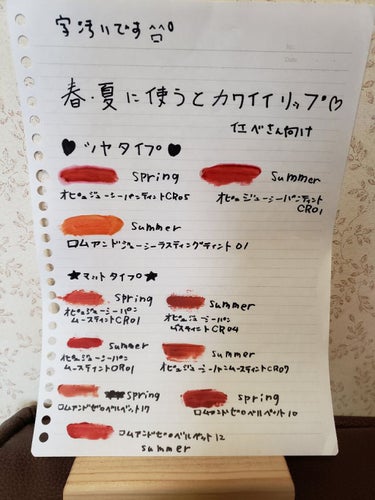 字汚いです^^;
No.
Date
春・夏に使うとカワイイリップ♡
イエベさん向け
♥ツヤタイプ♥
Spring
オピュジューシーパンティントCR05
Summer
オピュジューシーパンティント
CR01
Summer
ロムアンドジューシーラスティングティント01
★マットタイプ★
Spring
オピュジューシーパン
ムースティントCR01
summer
オピュジューシーパン
ムースティントCR04
summer
オピュジューシーパン
ムースティントOR01
summer
オピュジューシーパンムースティントCR07
spring
ロムアンドゼロベルベット17
spring
ロムアンドゼロベルベット10
ロムアンドゼロベルベット12
summer